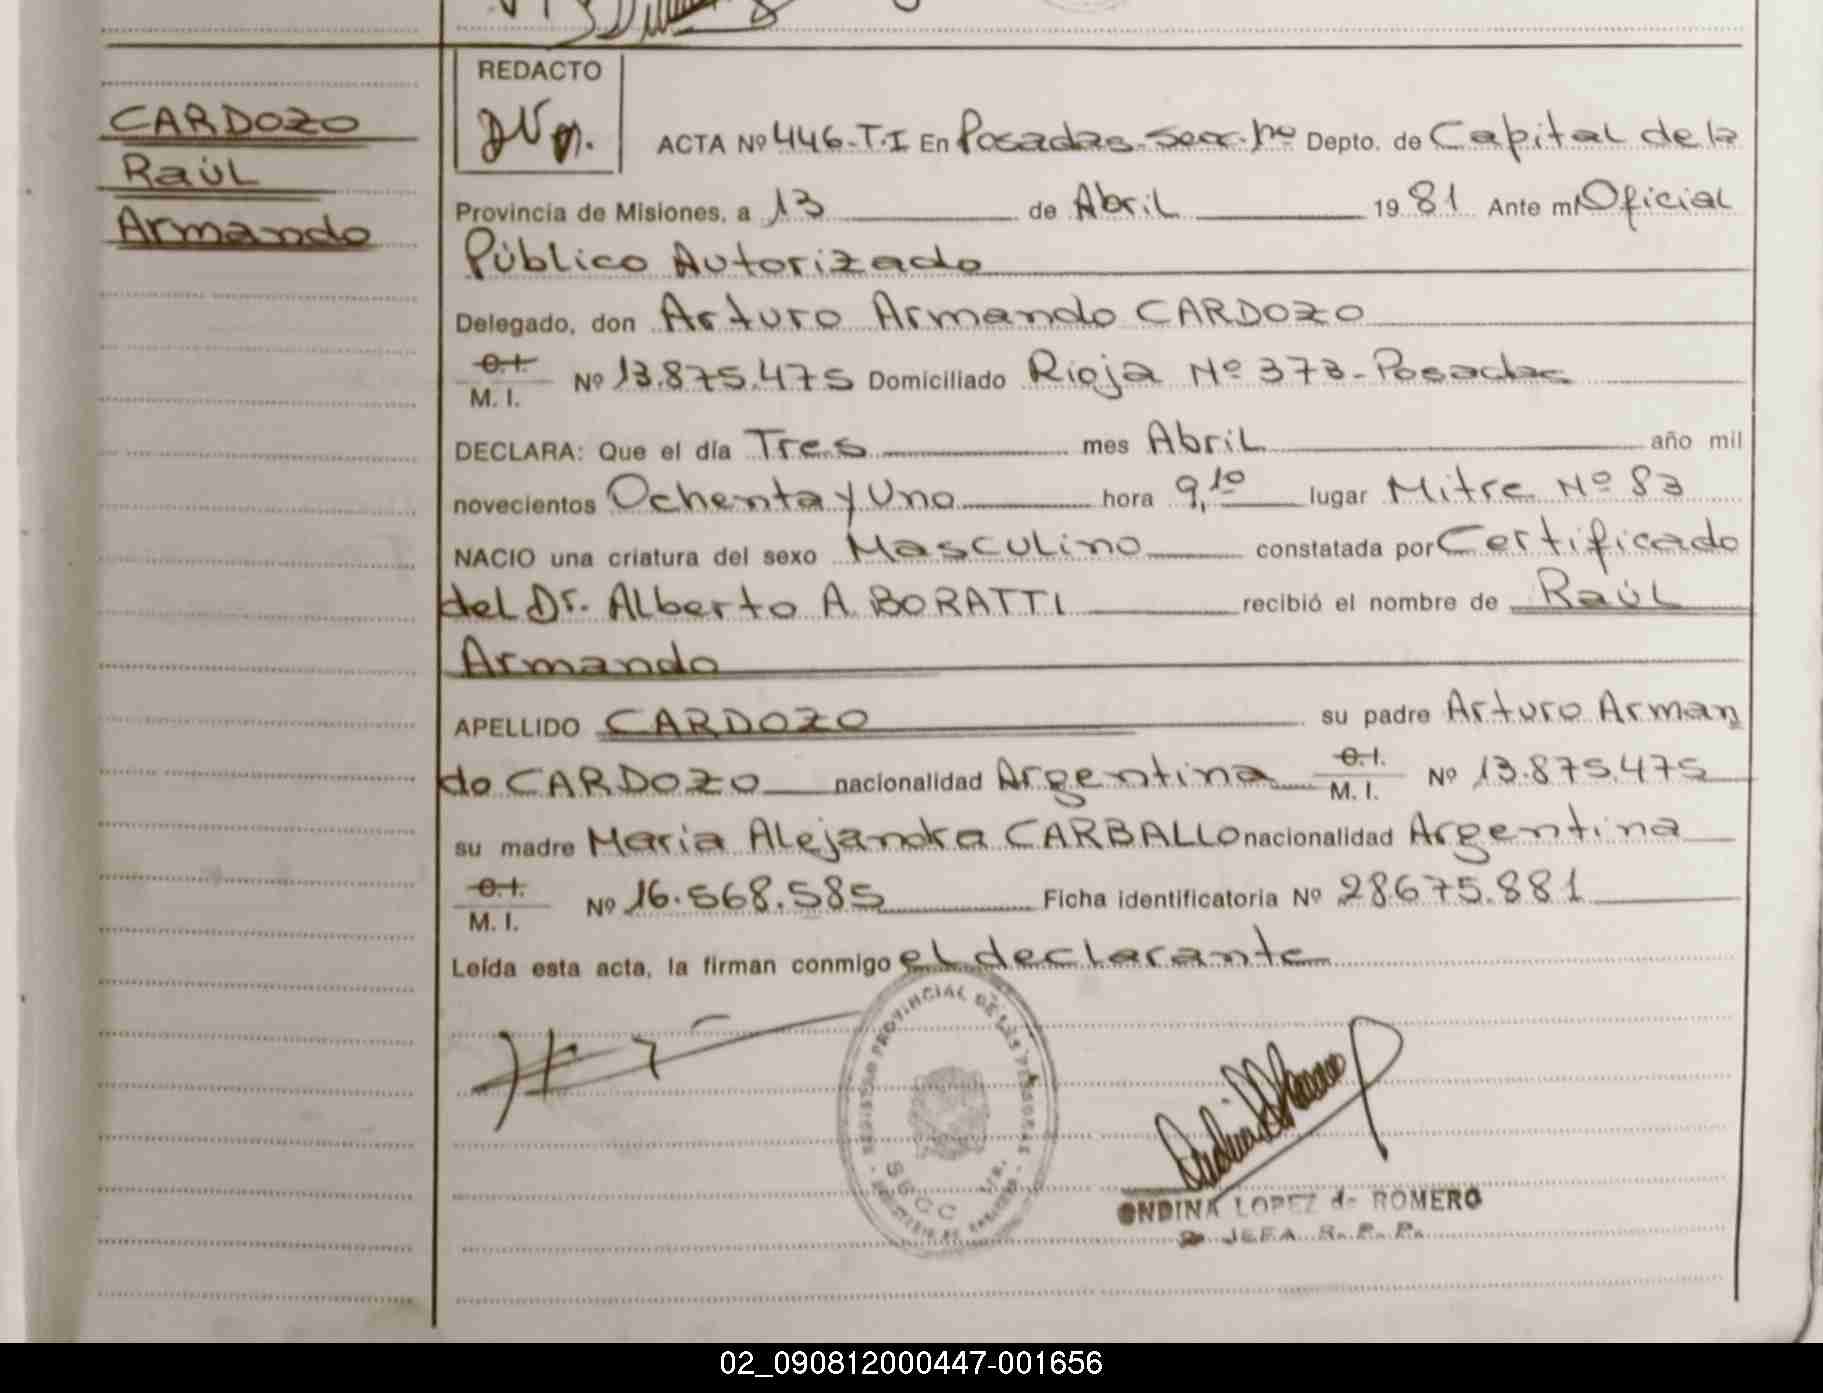 CARDOZO
Raúl
Armando
REDACTO
ACTA Nº 446-T.I En Posadas-Secc.1ra Depto. de Capital de la
Provincia de Misiones, a 13 de Abril 1981 Ante mi Oficial
Público Autorizado
Delegado, don Arturo Armando CARDOZO
C.I. M. I. Nº 13.875.475 Domiciliado Rioja Nº 373-Posadas
DECLARA: Que el día Tres mes Abril año mil
novecientos Ochenta y Uno hora 9,10 lugar Mitre Nº 83
NACIO una criatura del sexo Masculino constatada por Certificado
del Dr. Alberto A. BORATTI recibió el nombre de Raúl
Armando
APELLIDO CARDOZO su padre Arturo Arman
do CARDOZO nacionalidad Argentina C.I. M. I. Nº 13.875.475
su madre Maria Alejandra CARBALLO nacionalidad Argentina
C.I. M. I. Nº 16.568.585 Ficha identificatoria Nº 28675.881
Leída esta acta, la firman conmigo el declarante
REGISTRO PROVINCIAL DE LAS PERSONAS
ONDINA LOPEZ de ROMERO
JEFA R. P. P.
02_090812000447-001656